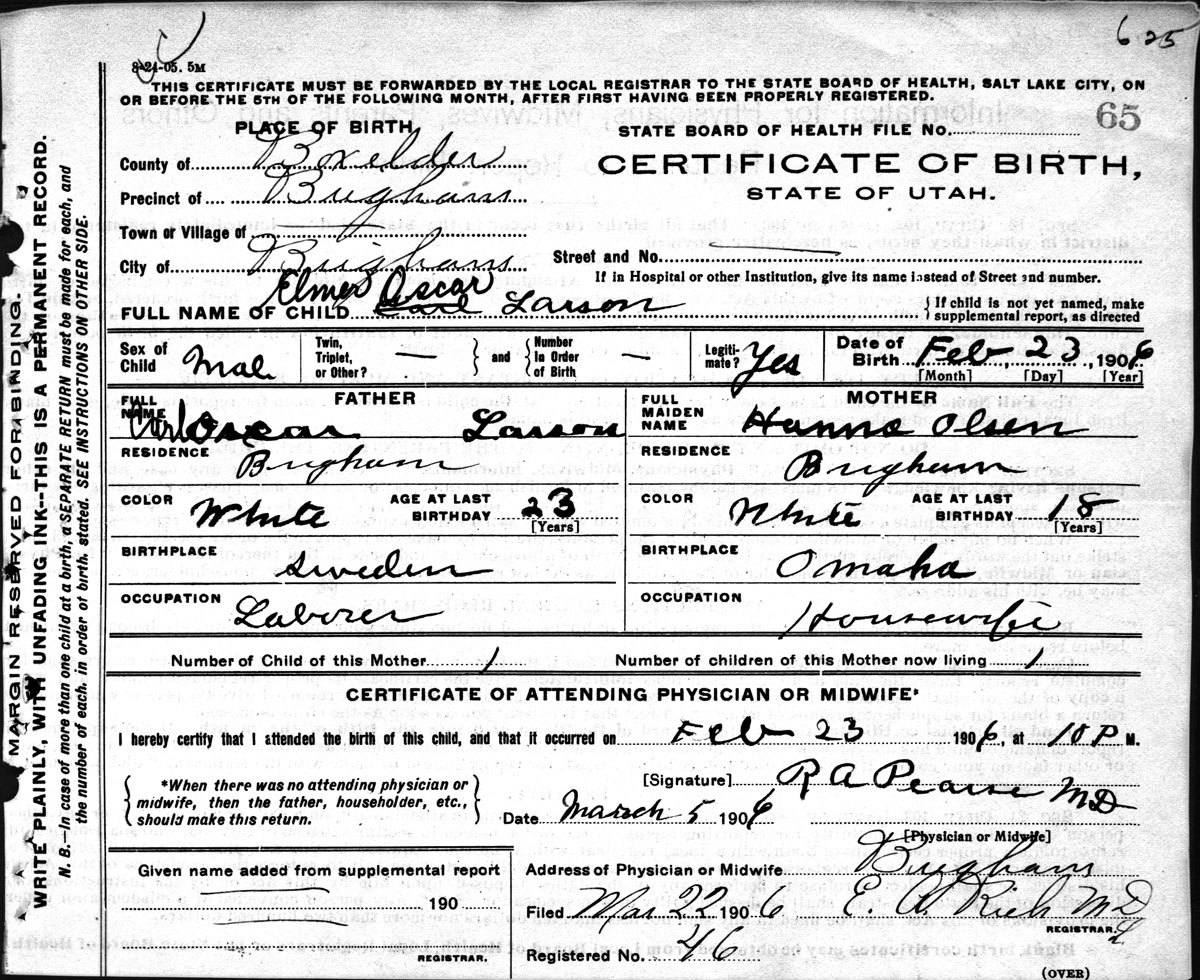 625
8-24-05. 5M
THIS CERTIFICATE MUST BE FORWARDED BY THE LOCAL REGISTRAR TO THE STATE BOARD OF HEALTH, SALT LAKE CITY, ON
OR BEFORE THE 5TH OF THE FOLLOWING MONTH, AFTER FIRST HAVING BEEN PROPERLY REGISTERED.
PLACE OF BIRTH
STATE BOARD OF HEALTH FILE No. 65
County of Boxelder
CERTIFICATE OF BIRTH,
Precinct of Brigham
STATE OF UTAH.
Town or Village of
City of Brigham
Street and No.
If in Hospital or other Institution, give its name instead of Street and number.
Elmer Oscar
FULL NAME OF CHILD Carl Larson
{ If child is not yet named, make
supplemental report, as directed
Sex of Child Male
Twin, Triplet, or Other? — } and { Number In Order of Birth —
Legiti-mate? Yes
Date of Birth Feb 23, 1906
[Month] [Day] [Year]
FATHER
FULL NAME Carl Oscar Larson
RESIDENCE Brigham
COLOR White
AGE AT LAST BIRTHDAY 23
[Years]
BIRTHPLACE Sweden
OCCUPATION Laborer
MOTHER
FULL MAIDEN NAME Hanna Olsen
RESIDENCE Brigham
COLOR White
AGE AT LAST BIRTHDAY 18
[Years]
BIRTHPLACE Omaha
OCCUPATION Housewife
Number of Child of this Mother 1
Number of children of this Mother now living 1
CERTIFICATE OF ATTENDING PHYSICIAN OR MIDWIFE*
I hereby certify that I attended the birth of this child, and that it occurred on Feb 23 1906, at 10 P M.
{ *When there was no attending physician or
midwife, then the father, householder, etc.,
should make this return. }
[Signature] R A Pearse MD
Date March 5 1906
[Physician or Midwife]
Given name added from supplemental report
190
REGISTRAR.
Address of Physician or Midwife Brigham
Filed Mar 22 1906 E. A. Rich MD
REGISTRAR.
Registered No. 46
(OVER)
MARGIN RESERVED FOR BINDING.
WRITE PLAINLY, WITH UNFADING INK--THIS IS A PERMANENT RECORD.
N. B.—In case of more than one child at a birth, a SEPARATE RETURN must be made for each, and
the number of each, in order of birth, stated. SEE INSTRUCTIONS ON OTHER SIDE.